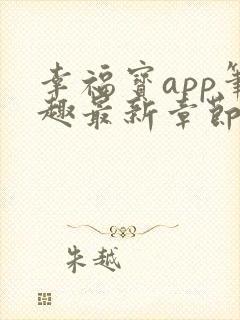 幸福宝app笔
趣最新章节
朱越